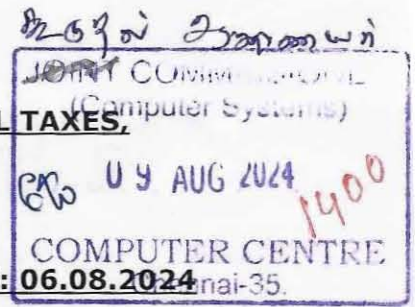 கூடுதல் ஆணையர்
JOINT COMMISSIONER
(Computer Systems)
L TAXES,
09 AUG 2024
1400
COMPUTER CENTRE
: 06.08.2024
Chennai-35.